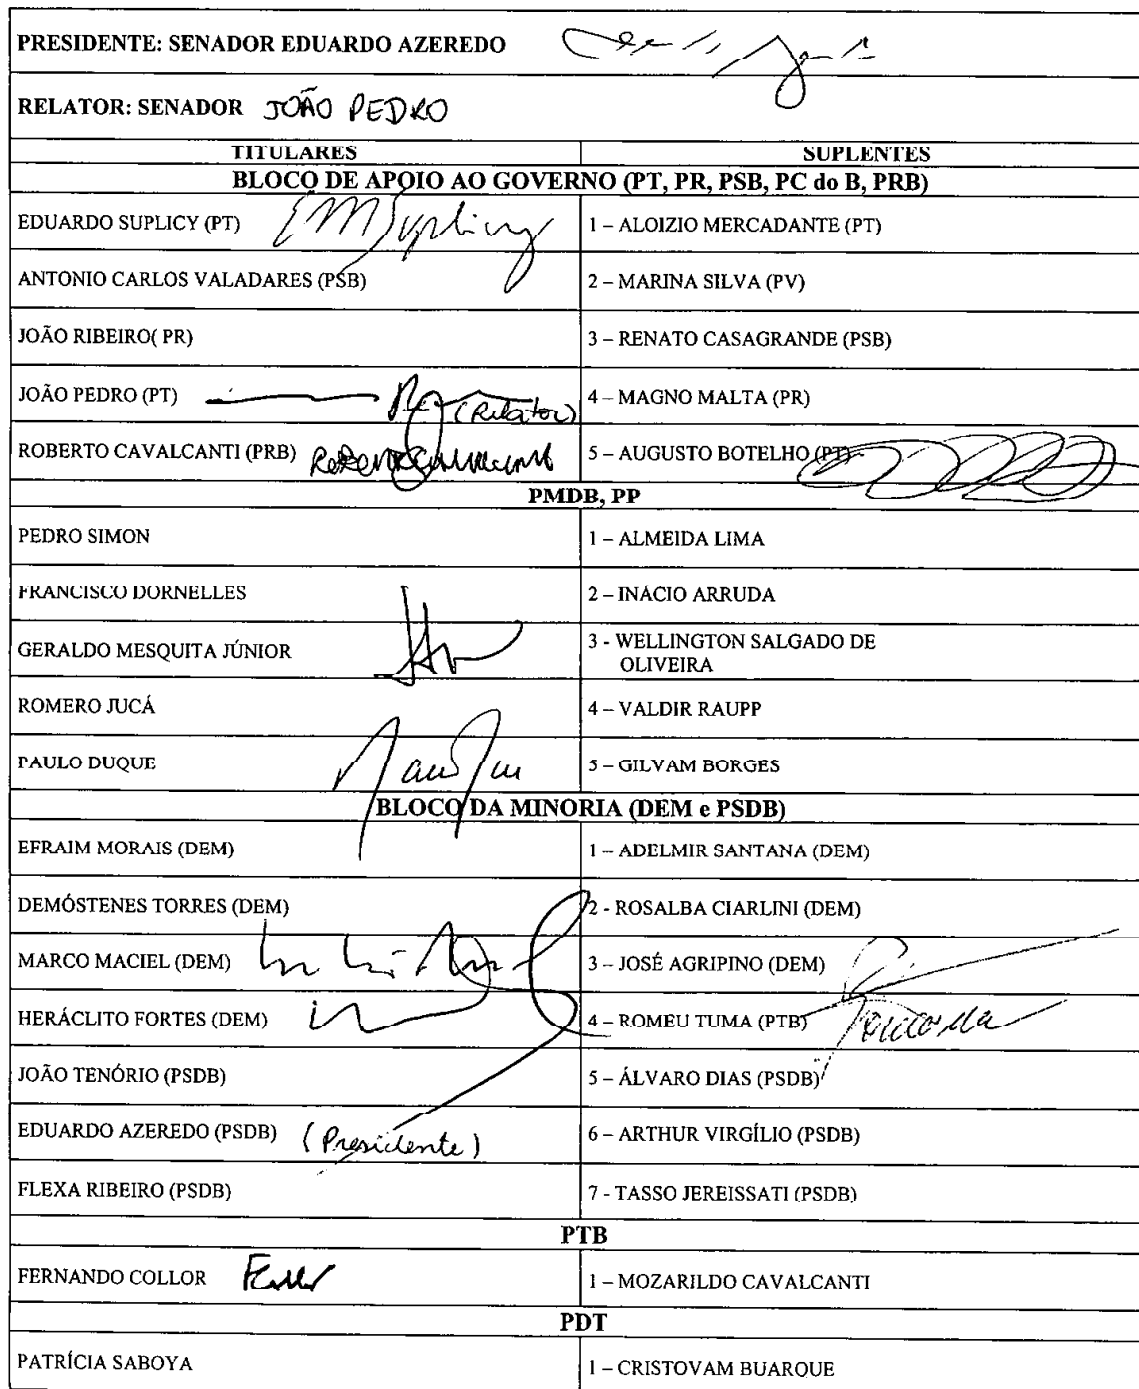 PRESIDENTE: SENADOR EDUARDO AZEREDO
RELATOR: SENADOR JOÃO PEDRO
TITULARES SUPLENTES
BLOCO DE APOIO AO GOVERNO (PT, PR, PSB, PC do B, PRB)
EDUARDO SUPLICY (PT) EMSuplicy 1 – ALOIZIO MERCADANTE (PT)
ANTONIO CARLOS VALADARES (PSB) 2 – MARINA SILVA (PV)
JOÃO RIBEIRO( PR) 3 – RENATO CASAGRANDE (PSB)
JOÃO PEDRO (PT) (Relator) 4 – MAGNO MALTA (PR)
ROBERTO CAVALCANTI (PRB) 5 – AUGUSTO BOTELHO (PT)
PMDB, PP
PEDRO SIMON 1 – ALMEIDA LIMA
FRANCISCO DORNELLES 2 – INÁCIO ARRUDA
GERALDO MESQUITA JÚNIOR 3 - WELLINGTON SALGADO DE
OLIVEIRA
ROMERO JUCÁ 4 – VALDIR RAUPP
PAULO DUQUE 5 – GILVAM BORGES
BLOCO DA MINORIA (DEM e PSDB)
EFRAIM MORAIS (DEM) 1 – ADELMIR SANTANA (DEM)
DEMÓSTENES TORRES (DEM) 2 - ROSALBA CIARLINI (DEM)
MARCO MACIEL (DEM) 3 – JOSÉ AGRIPINO (DEM)
HERÁCLITO FORTES (DEM) 4 – ROMEU TUMA (PTB)
JOÃO TENÓRIO (PSDB) 5 – ÁLVARO DIAS (PSDB)
EDUARDO AZEREDO (PSDB) (Presidente) 6 – ARTHUR VIRGÍLIO (PSDB)
FLEXA RIBEIRO (PSDB) 7 - TASSO JEREISSATI (PSDB)
PTB
FERNANDO COLLOR 1 – MOZARILDO CAVALCANTI
PDT
PATRÍCIA SABOYA 1 – CRISTOVAM BUARQUE